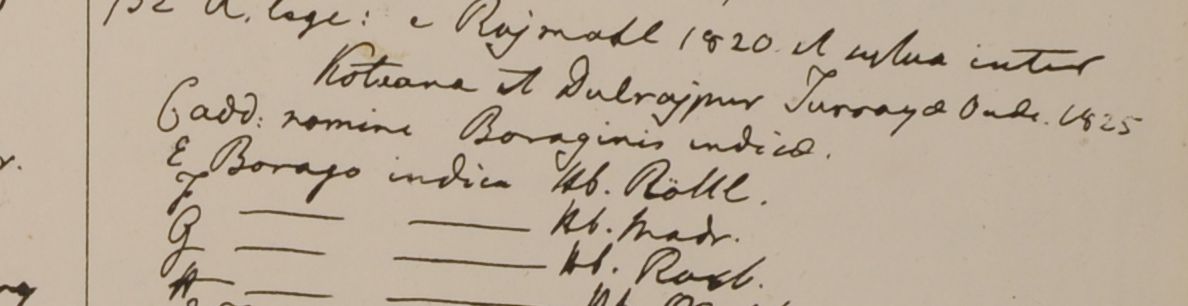 932 A. lege: e Rajmahl 1820 et sylva inter
Koteana et Dulrajpur Turrayæ Oude. 1825
C add: nomine Boraginis indicæ.
E Borago indica Hb. Röttl.
F — — Hb. Madr.
G — — Hb. Roxb.
H — — Hb.